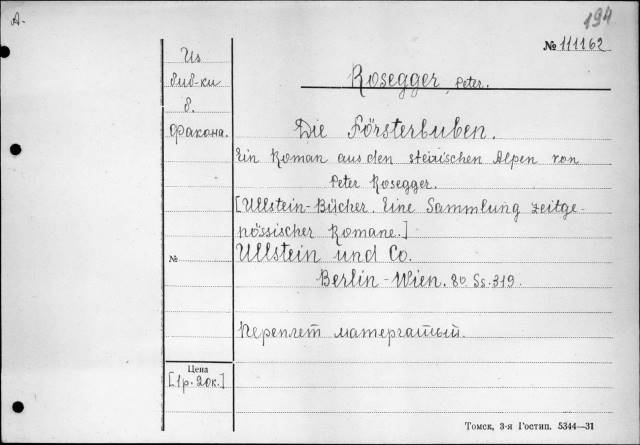 A.
194
№ 111162
Из
биб-ки
б.
Фракона.
Rosegger, Peter.
Die Försterbuben.
Ein Roman aus den steirischen Alpen von
Peter Rosegger.
[Ullstein-Bücher. Eine Sammlung zeitge-
nössischer Romane.]
№
Ullstein und Co.
Berlin-Wien. 8º. Ss. 319.
Переплет
Цена
[1р. 20к.]
Томск, 3-я Гостип. 5344—31